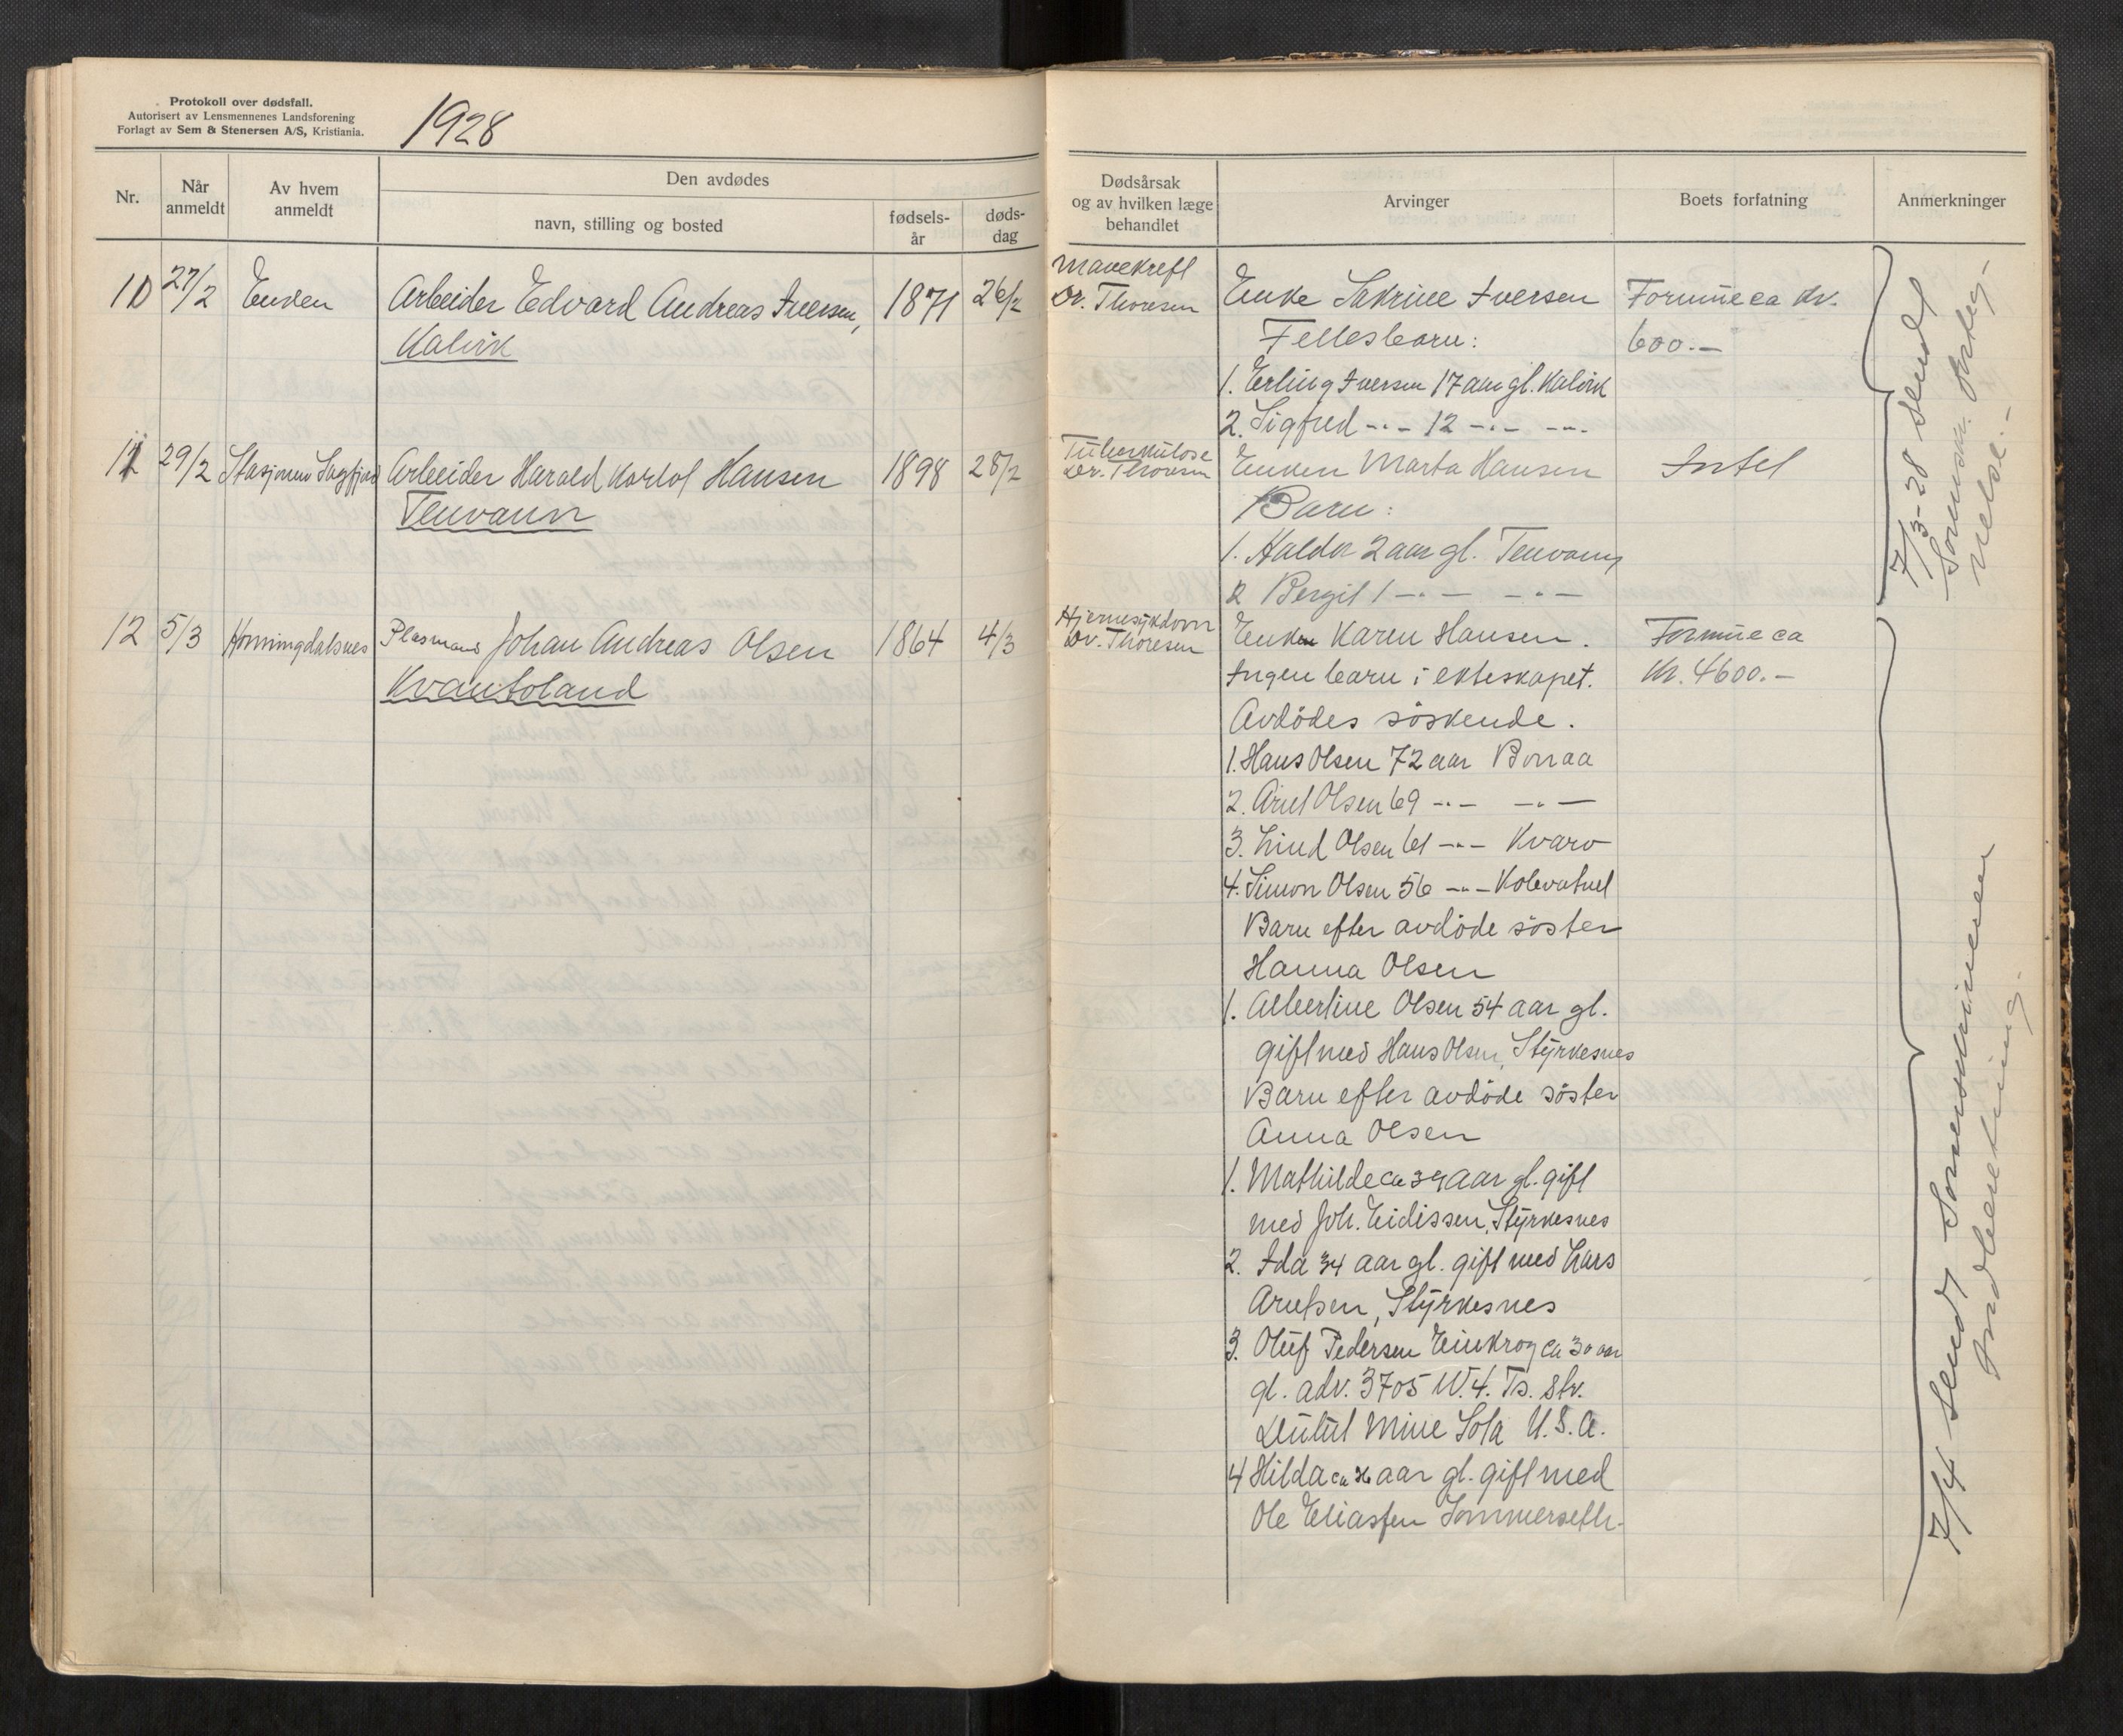 Protokoll over dødsfall.
Autorisert av Lensmennenes Landsforening
Forlagt av Sem & Stenersen A/S, Kristiania.
1928
Nr.
Når anmeldt
Av hvem anmeldt
Den avdødes
navn, stilling og bosted
fødsels-år
døds-dag
Dødsårsak og av hvilken læge behandlet
Arvinger
Boets forfatning
Anmerkninger
10 27/2 Enken Arbeider Edvard Andreas Iversen, 1871 26/2
Kalvik
Mavekreft
Dr. Thoresen
Enke Sakrine Iversen
Fellesbarn:
1. Erling Iversen 17 aar gl. Kalvik
2. Sigfred -"- 12 -"- -"-
Formue ca kr.
600.-
11 29/2 Stasjonen Sagfjord Arbeider Harald Hansen 1898 28/2
Tenvann
Tuberkulose
Dr. Thoresen
Enken Marta Hansen
Barn:
1. Haldor 2 aar gl. Tenvann
2 Bergit 1 -"- -"-
Intet
7/3-28 sendt
Sorenskr. -
-
12 5/3 Horningdalsnes Plasmand Johan Andreas Olsen 1864 4/3
Kvantoland
Hjernesykdom
Dr. Thoresen
Enken Karen Hansen.
Ingen barn i ekteskapet.
Avdödes söskende.
1. Hans Olsen 72 aar Bonaa
2. Arnt Olsen 69 -"- -"-
3. Lind Olsen 61 -"- Kvarv
4. Simon Olsen 56 -"- Kobvatnet
Barn efter avdöde söster
Hanna Olsen
1. Albertine Olsen 54 aar gl.
gift med Hans Olsen, Styrkesnes
Barn efter avdöde söster
Anna Olsen
1. Mathilde ca 39 aar gl. gift
med Joh. Eidissen, Styrkesnes
2. Ida 34 aar gl. gift med Lars
Arntsen, Styrkesnes
3. Oluf Pedersen Einkrog ca 30 aar
gl. adr. 3705 W. 4. Ts. Str.
Dulut Mine Sota U.S.A.
4 Hilda ca 26 aar gl. gift med
Ole Eliassen Sommerseth.
Formue ca
kr. 4600.-
7/4 sendt Sorenskriveren
Indberetning.